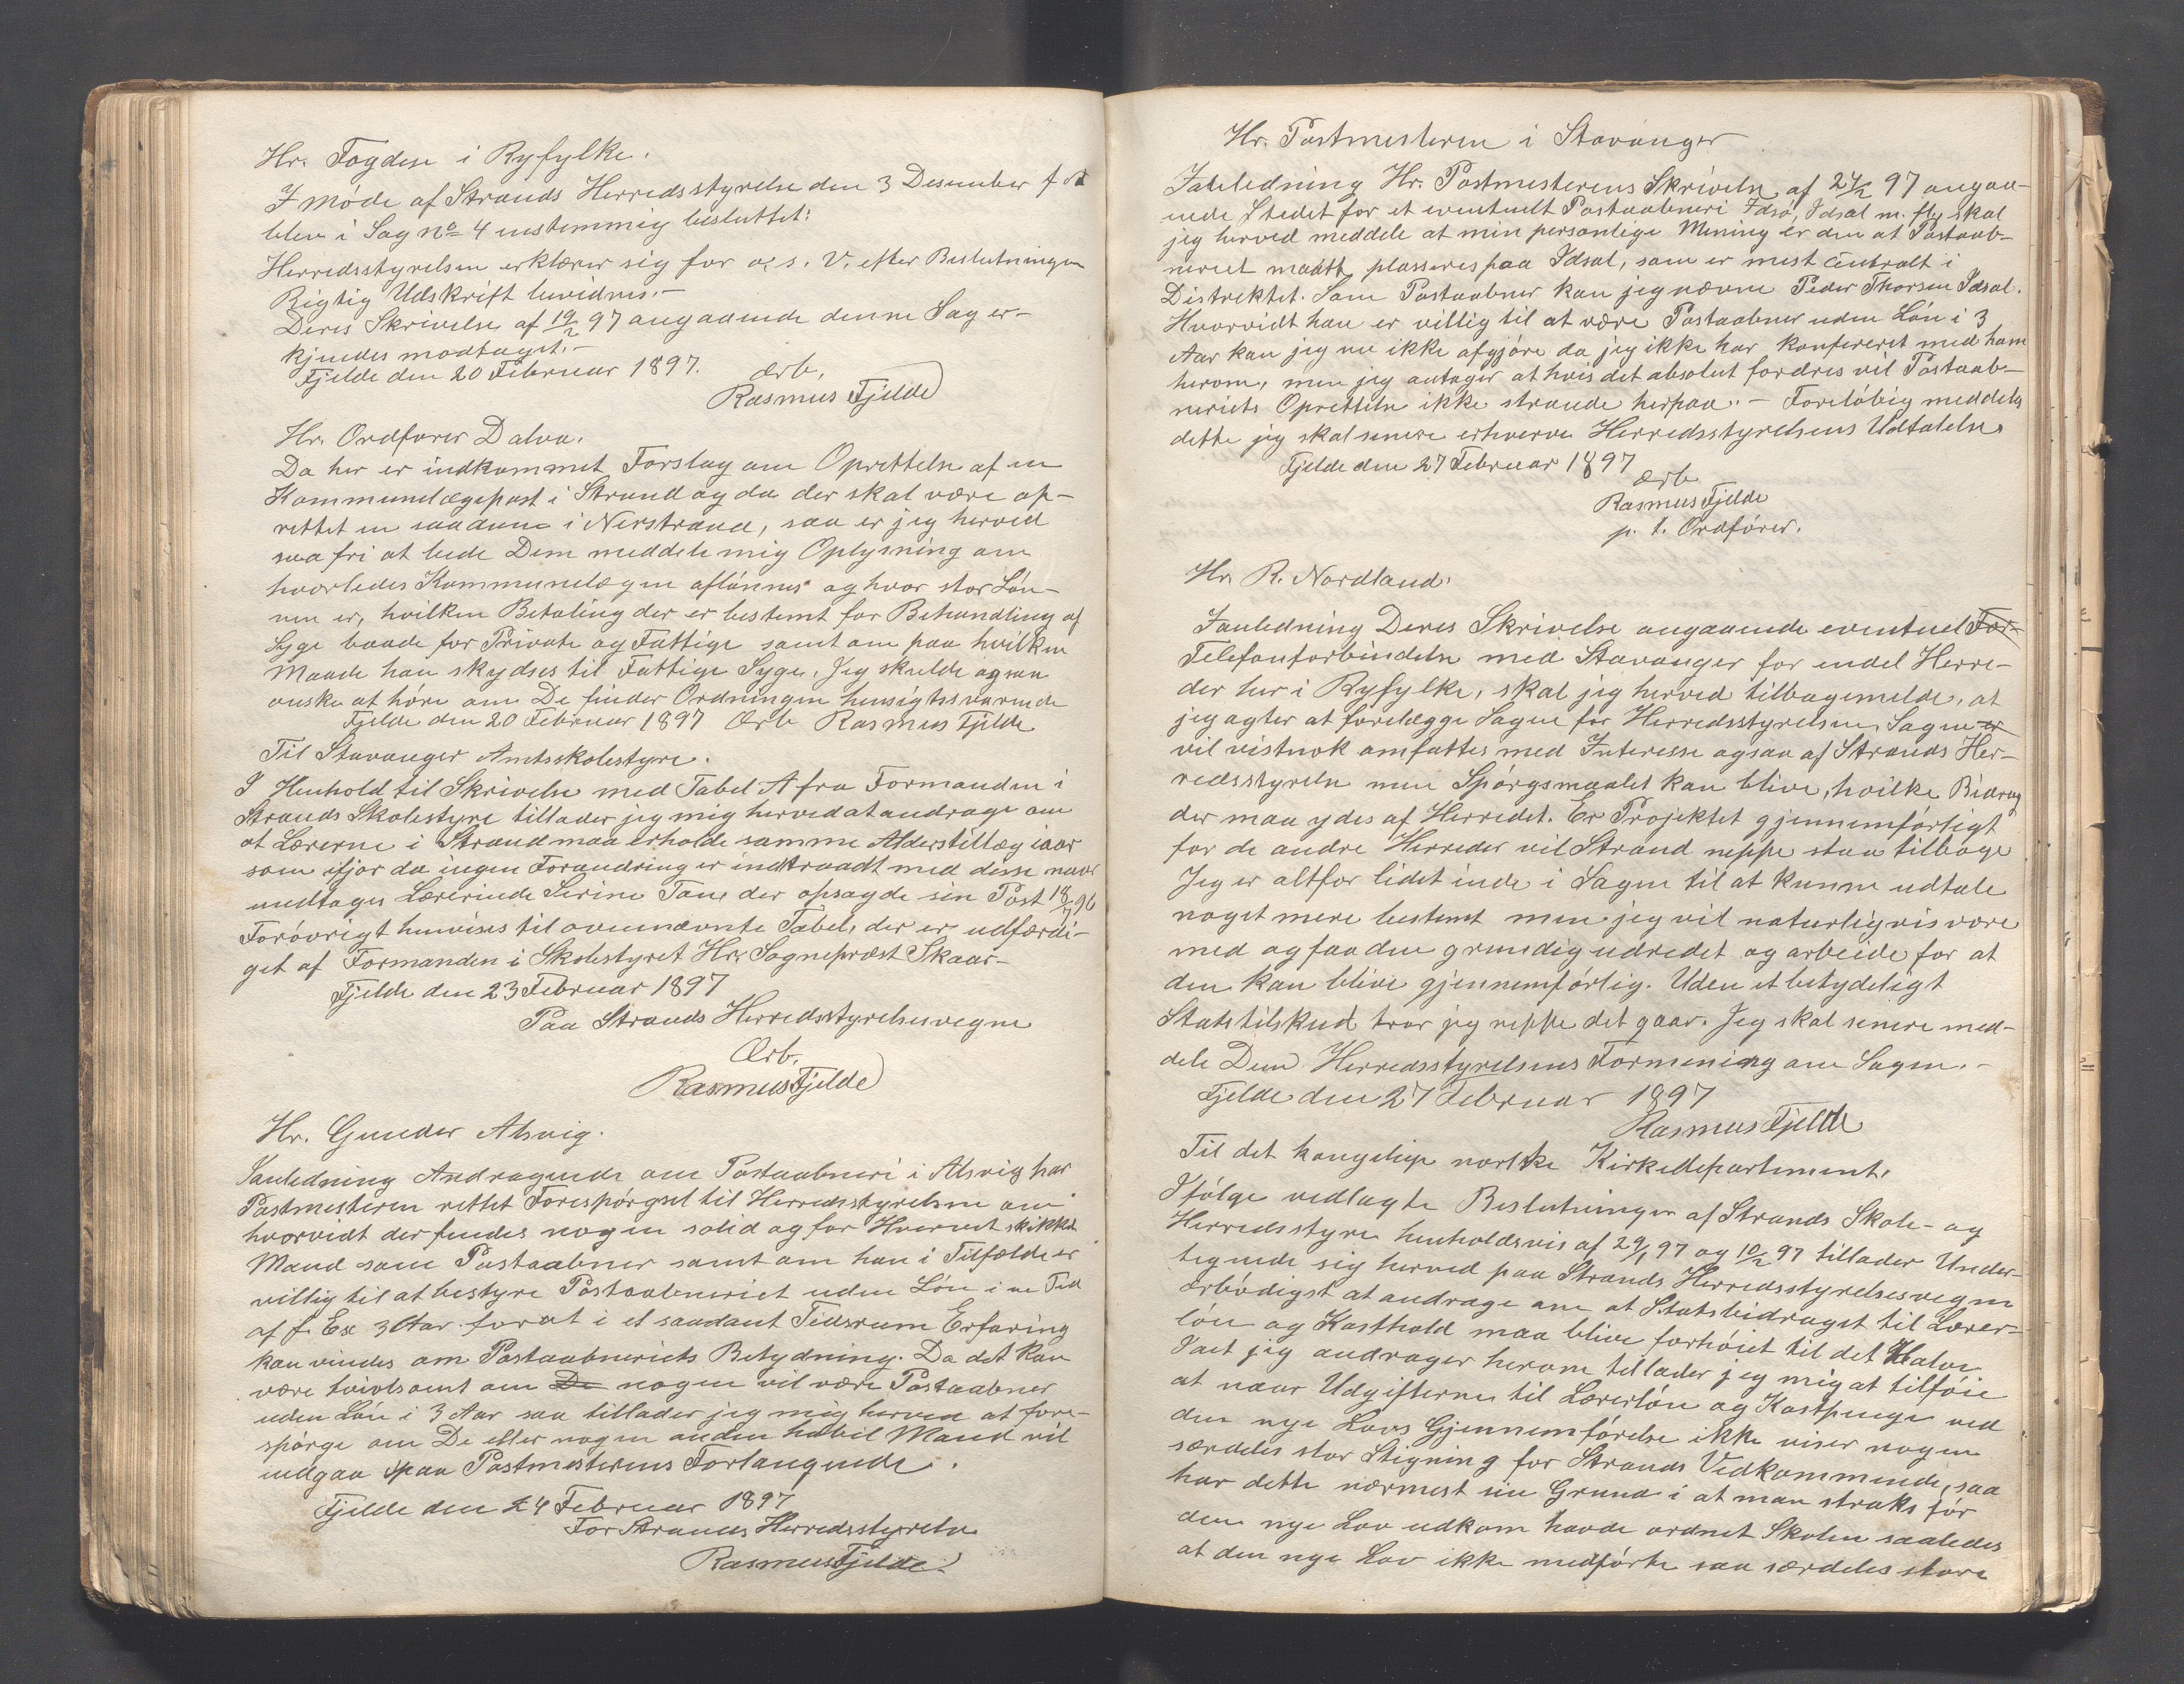 Hr. Fogden i Ryfylke.
I Møde af Strands Herredsstyrelse den 3 Desember f.
blev i Sag no 4 enstemmig besluttet:
Herredsstyrelsen erklærer sig for o. s. v. efter Beslutningen
Rigtig Udskrift bevidnes.-
Deres Skrivelse af 19/2 97 angaaende denne Sag er-
kjendes modtaget.-
Fjelde den 20 Februar 1897. Ærb,
Rasmus Fjelde
Hr. Ordfører Dalva.
Da her er indkommet Forslag om Oprettelse af en
Kommunelægepost i Strand og da der skal være op-
rettet en saadan i Nerstrand, saa er jeg herved
saa fri at bede Dem meddele mig Oplysning om
hvorledes Kommunelægen aflønnes og hvor stor Løn-
nen er, hvilken Betaling der er bestemt for Behandling af
Syge baade for Private og Fattige samt om paa hvilken
Maade han skydses til Fattige Syge. Jeg skulde ogsaa
ønske at høre om De finder Ordningen hensigtssvarende
Fjelde den 20 Februar 1897 Ærb Rasmus Fjelde
Til Stavanger Amtsskolestyre.
I Henhold til Skrivelse med Tabel A fra Formanden i
Strands Skolestyre tillader jeg mig herved at andrage om
at Lærerne i Strand maa erholde samme Alderstillæg iaar
som ifjor da ingen Forandring er indtraadt med disse naar
undtages Lærerinde Serine Tau, der opsagde sin Post 18/7 96
Forøvrigt henvises til ovennævnte Tabel, der er udfærdi-
get af Formanden i Skolestyret Hr. Sognepræst Skaar-
Fjelde den 23 Februar 1897
Paa Strands Herredsstyrelses vegne
Ærb.
Rasmus Fjelde
Hr. Gunder Alsvig.
Ianledning Andragende om Postaabneri i Alsvig har
Postmesteren rettet Forespørgsel til Herredsstyrelsen om
hvorvidt der findes nogen solid og for Hvervet skikket
Mand som Postaabner samt om han i Tilfælde er
villig til at bestyre Postaabneriet uden Løn i en Tid
af f. Ex 3 Aar forat i et saadant Tidsrum Erfaring
kan vindes om Postaabneriets Betydning. Da det kan
være tvivlsomt om De nogen vil være Postaabner
uden Løn i 3 Aar saa tillader jeg mig herved at fore-
spørge om De eller nogen anden habil Mand vil
indgaa paa Postmesterens Forlangende.
Fjelde den 24 Februar 1897
For Strands Herredsstyrelse
Rasmus Fjelde
Hr. Postmesteren i Stavanger
Ianledning Hr. Postmesterens Skrivelse af 24/2 97 angaa-
ende Stedet for et eventuelt Postaabneri Idsø, Idsal m. fl. skal
jeg herved meddele at min personlige Mening er den at Postaab-
neriet maatte plasseres paa Idsal, som er mest centralt i
Distriktet. Som Postaabner kan jeg nævne Peder Thorsen Idsal.
Hvorvidt han er villig til at være Postaabner uden Løn i 3
Aar kan jeg nu ikke afgjøre da jeg ikke har konfereret med ham
herom, men jeg antager at hvis det absolut fordres vil Postaab-
neriets Oprettelse ikke strande herpaa.- Foreløbig meddeles
dette jeg skal senere erhverve Herredsstyrelsens Udtalelse
Fjelde den 27 Februar 1897
Ærb
Rasmus Fjelde
p. t. Ordfører.
Hr. R. Nordland.
Ianledning Deres Skrivelse angaaende eventuel For-
Telefonforbindelse med Stavanger for endel Herre-
der her i Ryfylke, skal jeg herved tilbagemelde, at
jeg agter at forelægge Sagen for Herredsstyrelsen, Sagen er
vil vistnok omfattes med Interesse ogsaa af Strands Her-
redsstyrelse men Spørgsmaalet kan blive, hvilke Bidrag
der maa ydes af Herredet. Er Projektet gjennemførligt
for de andre Herreder vil Strand neppe staa tilbage
Jeg er altfor lidet inde i Sagen til at kunne udtale
noget mere bestemt men jeg vil naturligvis være
med og faa den grundig udredet og arbeide for at
den kan blive gjennemførlig. Uden et betydeligt
Statstilskud tror jeg neppe det gaar. Jeg skal senere med-
dele Dem Herredsstyrelsens Formening om Sagen.-
Fjelde den 27 Februar 1897
Rasmus Fjelde
Til det kongelige norske Kirkedepartement.
Ifølge vedlagte Beslutninger af Strands Skole- og
Herredsstyre henholdsvis af 29/1 97 og 10/2 97 tillader Under-
tegnede sig herved paa Strands Herredsstyrelses vegne
ærbødigst at andrage om at Statsbidraget til Lærer-
løn og Kosthold maa blive forhøiet til det Halve
Idet jeg andrager herom tillader jeg mig at tilføie
at naar Udgifterne til Lærerløn og Kostpenge ved
den nye Lovs Gjennemførelse ikke viser nogen
særdeles stor Stigning for Strands Vedkommende, saa
har dette nærmest sin Grund i at man straks før
den nye Lov udkom havde ordnet Skolen saaledes
at den nye Lov ikke medførte saa særdeles store